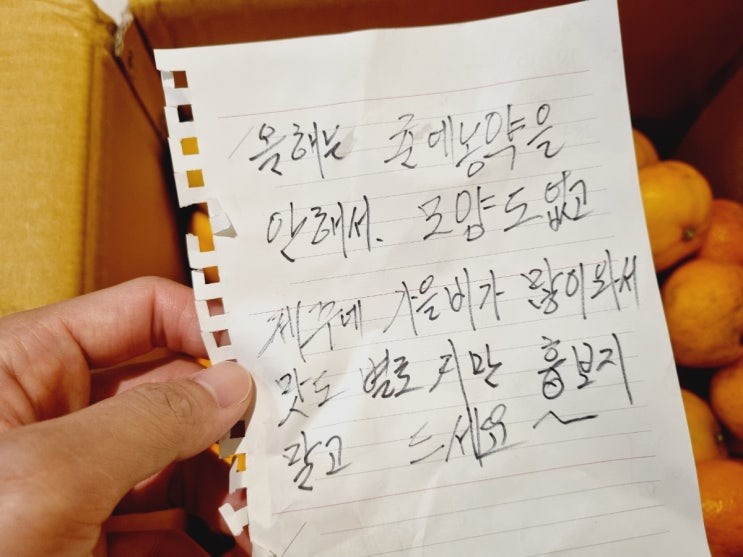 올해는 귤에농약을
안해서. 모양도없고
가을비가 많이와서
맛도 별로지만 흉보지
말고 드세요~